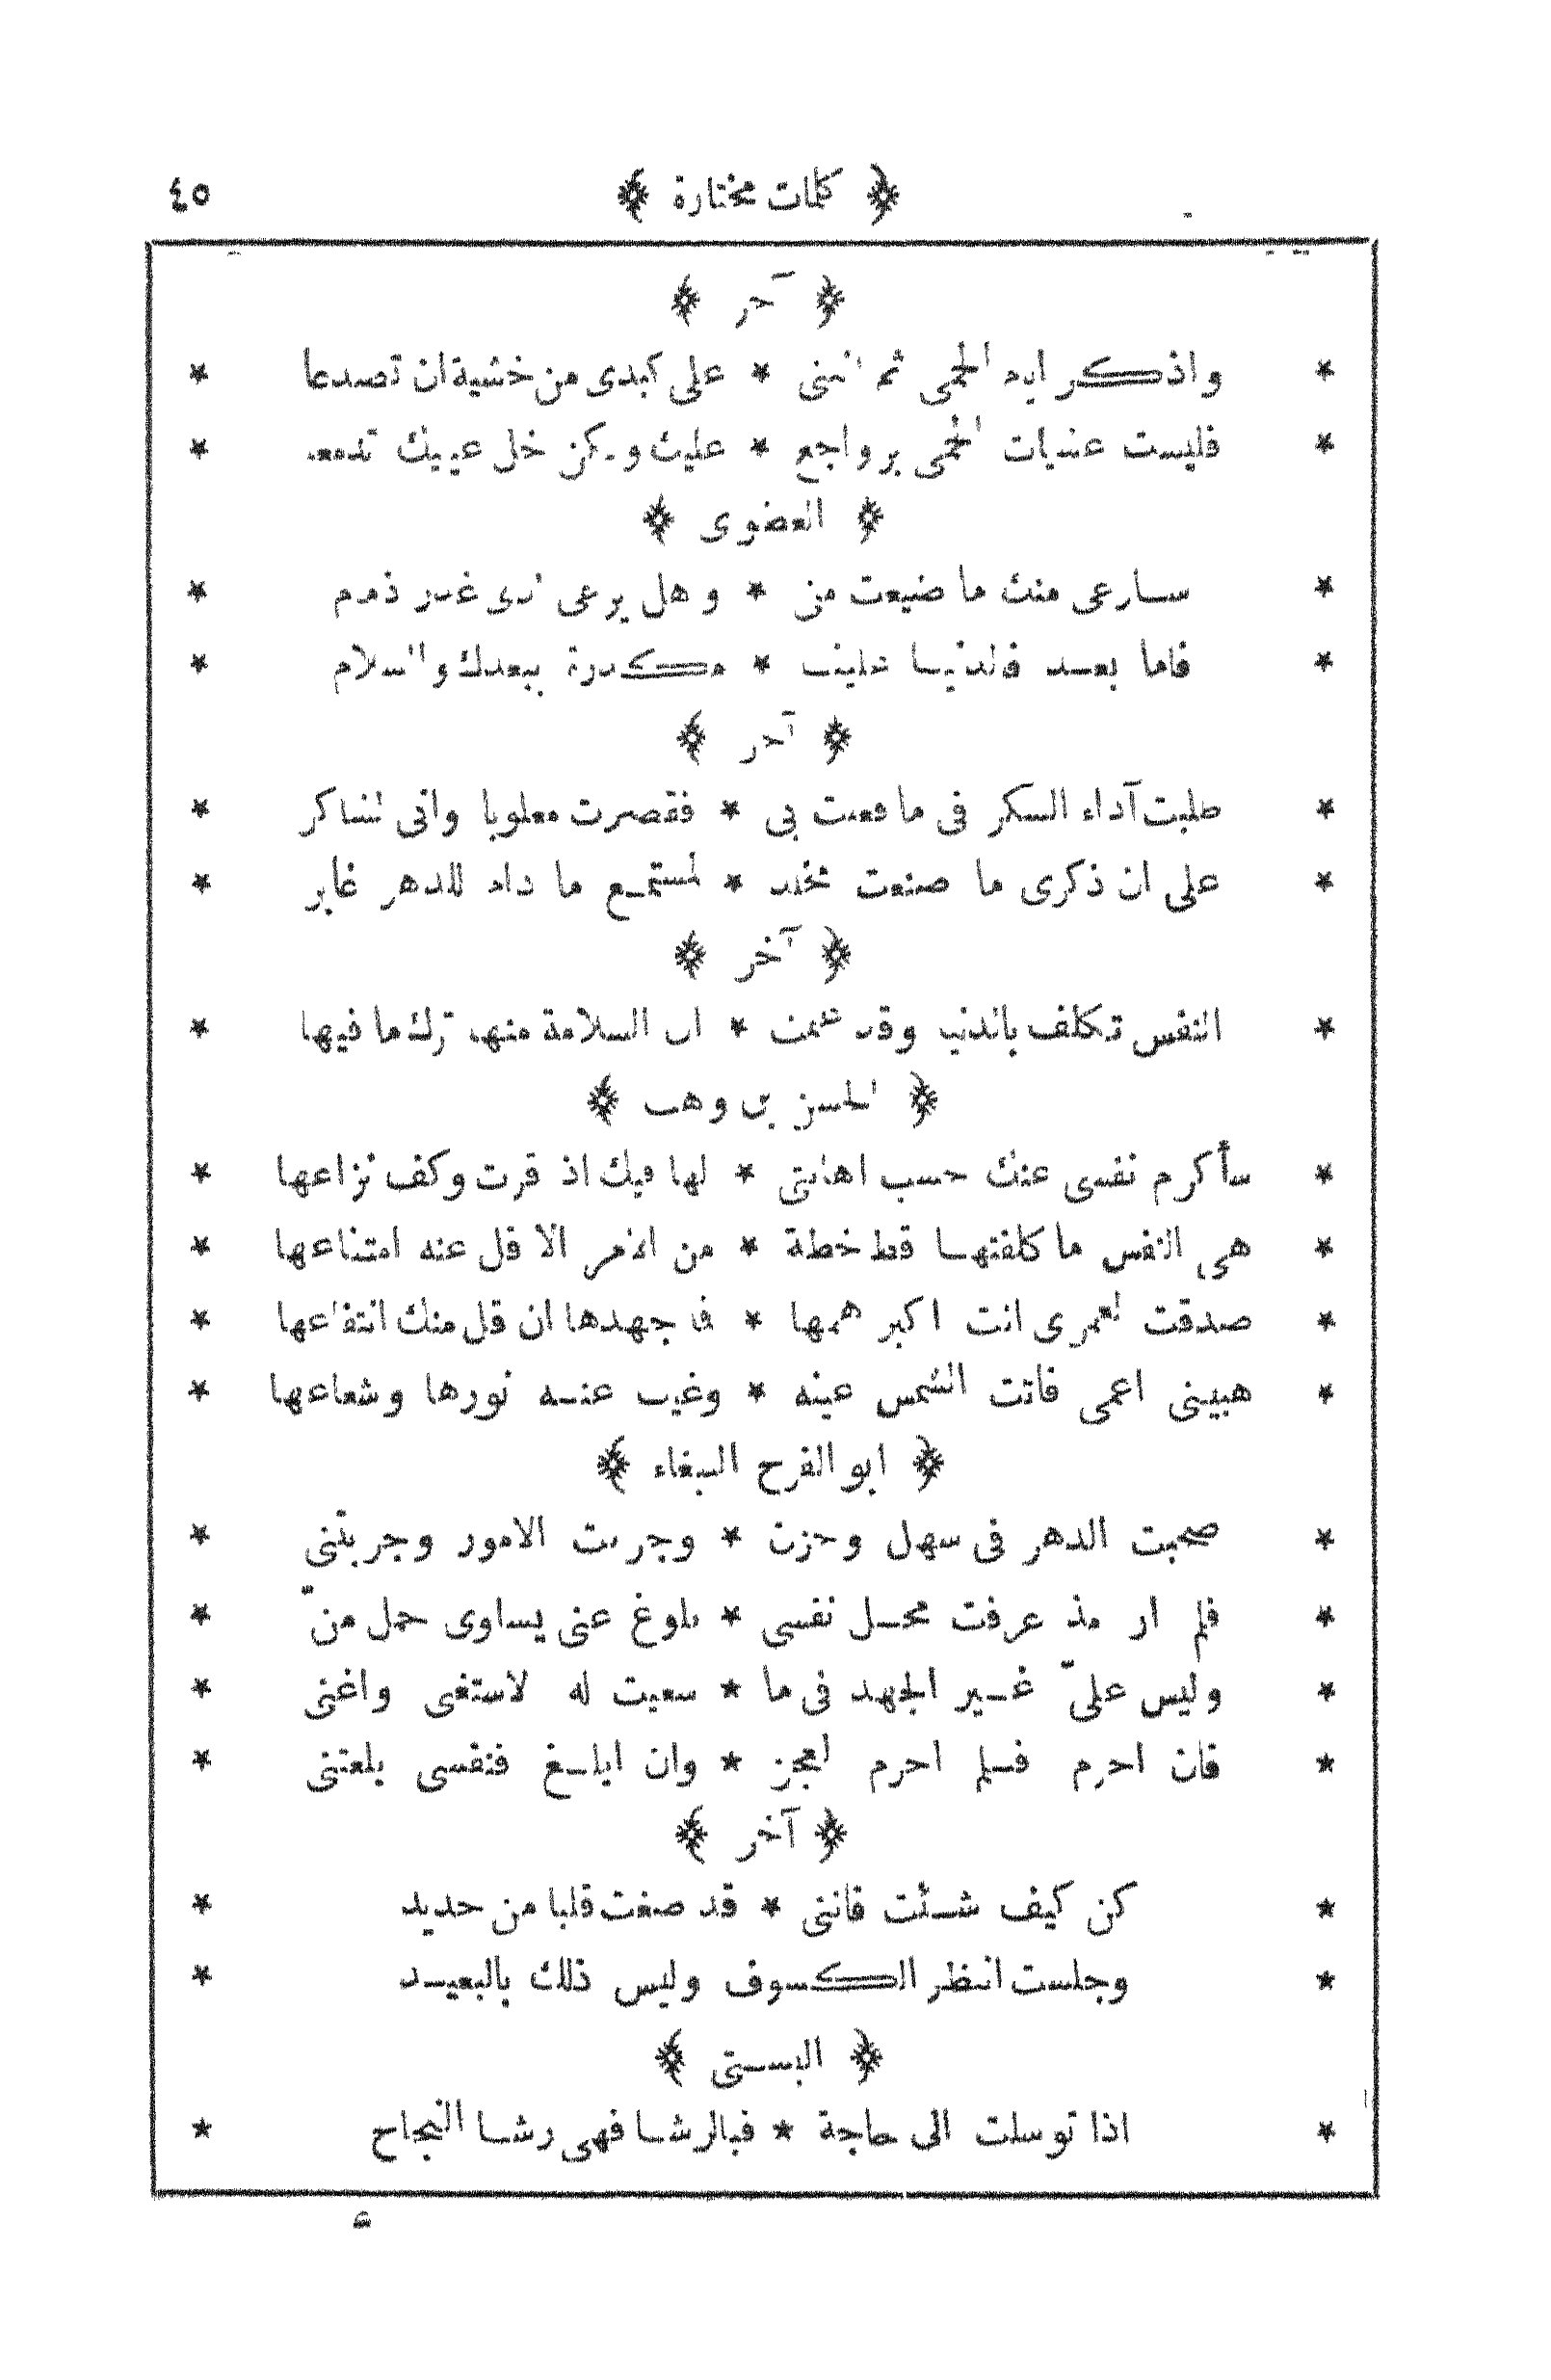 ﴿ كلمات مختارة ﴾ ٤٥
﴿ آخر ﴾
* واذكر ايام الحمى ثم انثنى * على كبدى من خشية ان تصدعا *
* فليست عشيات الحمى برواجع * عليك ولكن خل عينيك تدمعا *
﴿ العضوى ﴾
* سارعى منك ما ضيعت منى * وهل يرعى لدى غدر ذمام *
* فاما بعد فالدنيا علينا * مكدرة ببعدك والسلام *
﴿ آخر ﴾
* طلبت آداء الشكر فى ما فعلت بى * فقصرت مغلوبا وانى لشاكر *
* على ان ذكرى ما صنعت مخلد * لمستمع ما دام للدهر غابر *
﴿ آخر ﴾
* النفس تكلف بالدنيا وقد علمت * ان السلامة منها ترك ما فيها *
﴿ الحسن بن وهب ﴾
* سأكرم نفسى عنك حسب اهانتى * لها فيك اذ قرت وكف نزاعها *
* هى النفس ما كلفتها قط خطة * من الامر الا قل عنه امتناعها *
* صدقت لعمرى انت اكبر همها * فما جهدها ان قل منك انتفاعها *
* هبينى اعمى فاتت الشمس عينه * وغيب عنه نورها وشعاعها *
﴿ ابو الفرج الببغاء ﴾
* صحبت الدهر فى سهل وحزن * وجربت الامور وجربتنى *
* فلم ار مذ عرفت محل نفسى * بلوغ غنى يساوى حمل منّ *
* وليس علىّ غير الجهد فى ما * سعيت له لاستغنى واغنى *
* فان احرم فلم احرم لعجز * وان ابلغ فنفسى بلغتنى *
﴿ آخر ﴾
* كن كيف شئت فاننى * قد صغت قلبا من حديد *
* وجلست انتظر الكسوف وليس ذلك بالبعيد *
﴿ البستى ﴾
* اذا توسلت الى حاجة * فبالرشا فهى رشا النجاح *